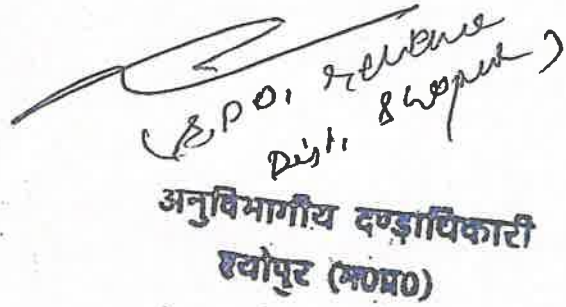 (S.D.O. revenue
Dist. Sheopur)
अनुविभागीय दण्ड़ाधिकारी
श्योपुर (म0प्र0)